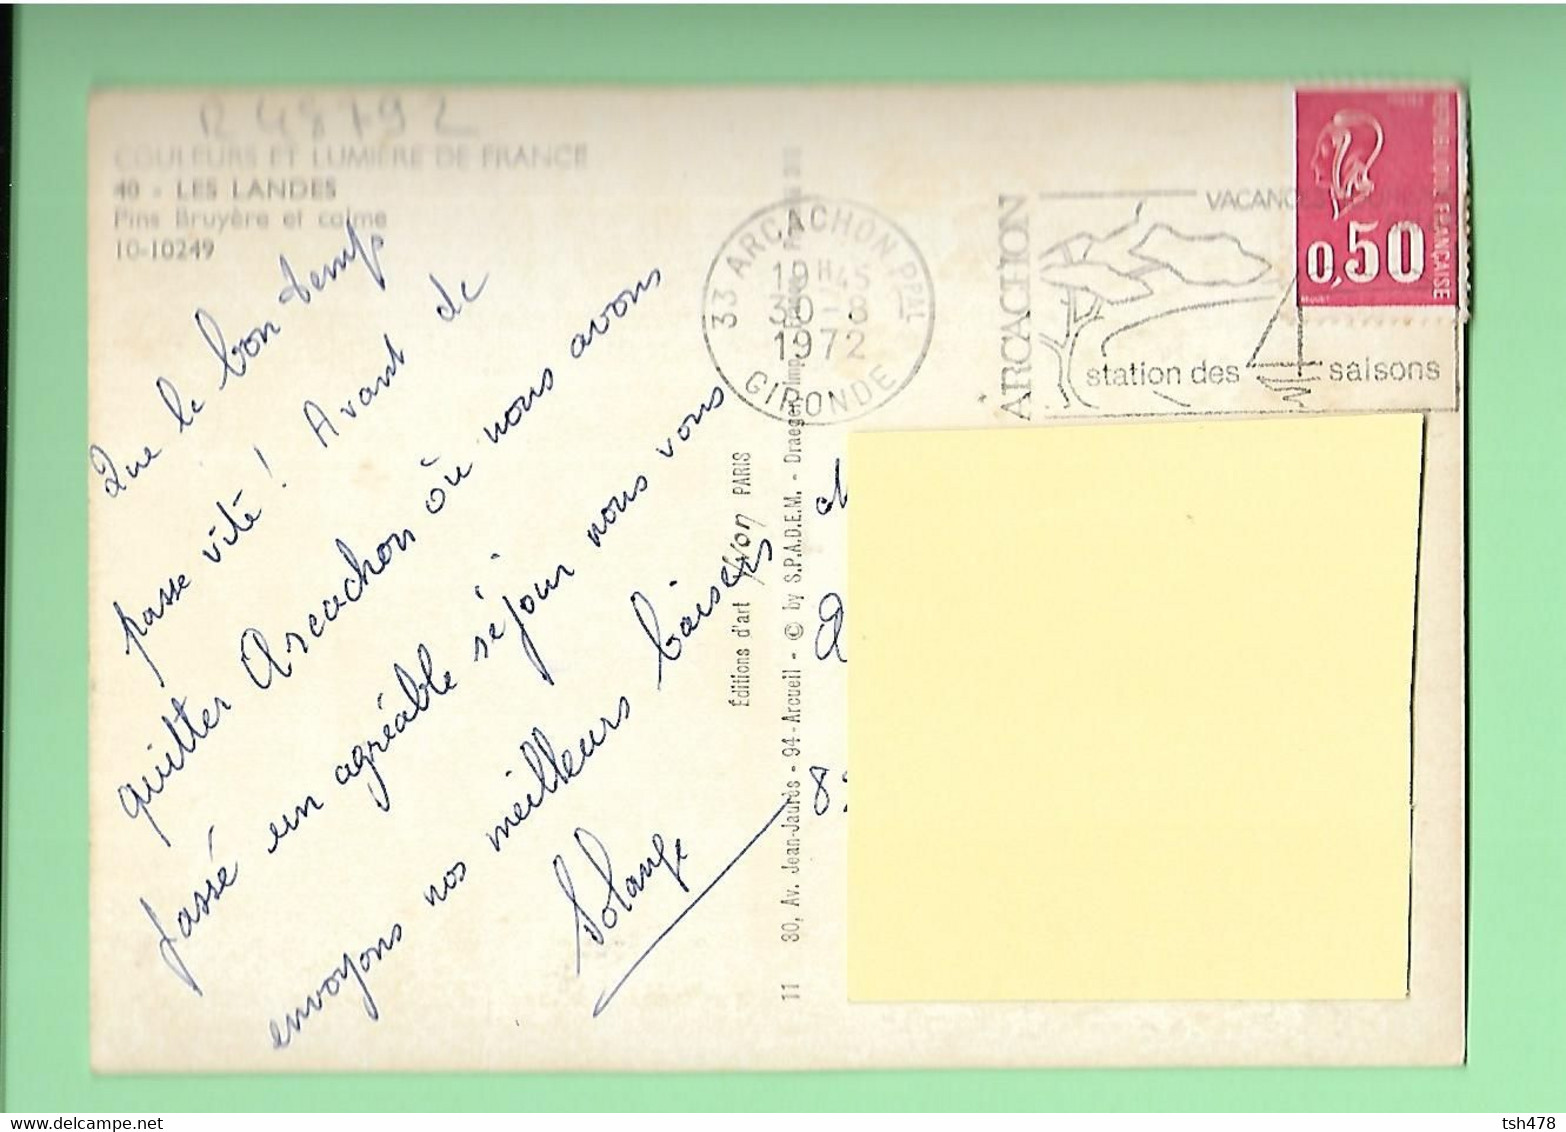 R 48792
COULEURS ET LUMIÈRE DE FRANCE
40 - LES LANDES
Pins Bruyère et calme
10-10249
Que le bon temps
passe vite ! Avant de
quitter Arcachon où nous avons
passé un agréable séjour nous vous
envoyons nos meilleurs baisers
Solange
Éditions d'art Yvon PARIS
11 30, Av. Jean-Jaurès - 94-Arcueil - © by S.P.A.D.E.M. - Draeger, Imp.
33 ARCACHON PPAL
19H45
30-8
1972
GIRONDE
ARCACHON
VACANCES
station des saisons
REPUBLIQUE FRANÇAISE
0,50
BEQUET
8
tsh478